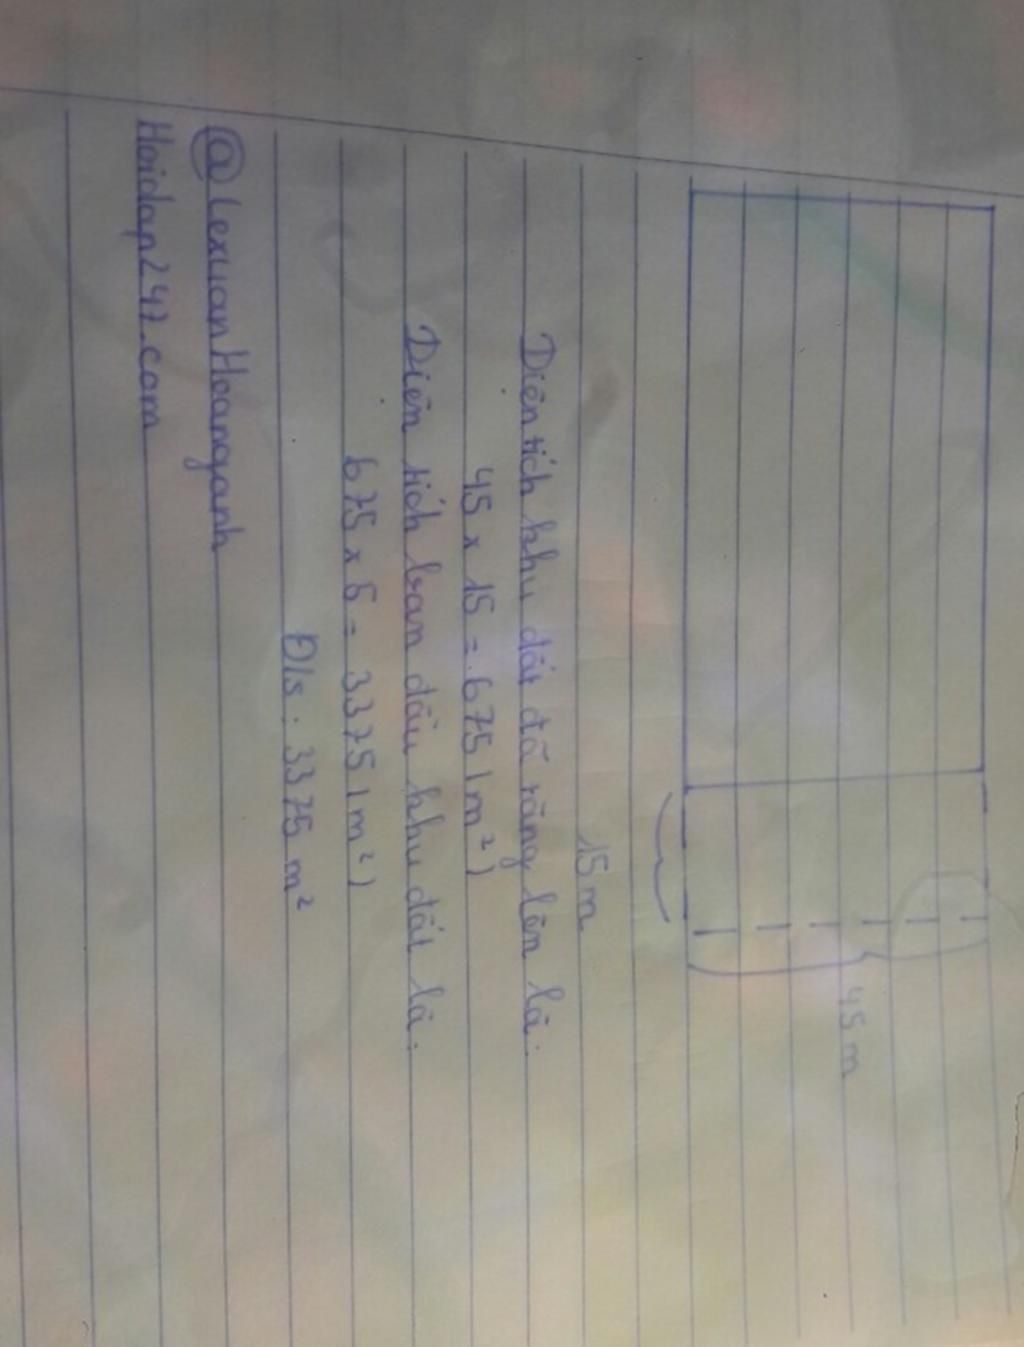 45m
15m
Diện tích khu đất đã tăng lên là:
45 x 15 = 675 (m²)
Diện tích ban đầu khu đất là:
675 x 5 = 3375 (m²)
Đ/s: 3375 m²
@LexuanHoanganh
Hoidap247.com